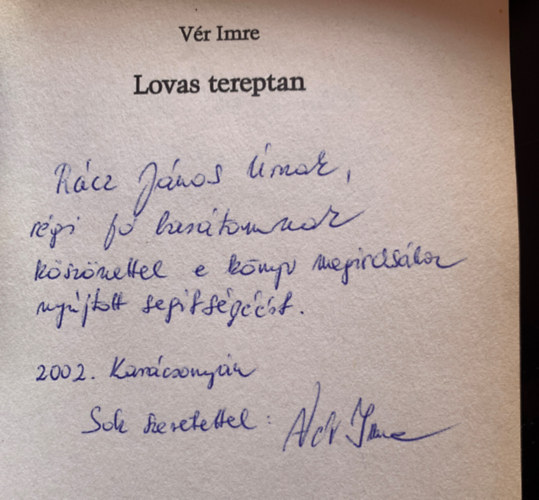 Vér Imre
Lovas tereptan
Rácz János Úrnak,
régi jó barátomnak
köszönettel e könyv megírásához
nyújtott segítségéért.
2002. Karácsonyán
Sok szeretettel: Vér Imre